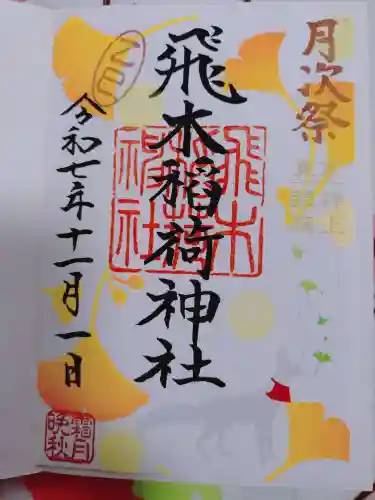 月次祭
飛木稲荷神社
飛木稲荷神社
令和七年十一月一日
霜月
晩秋